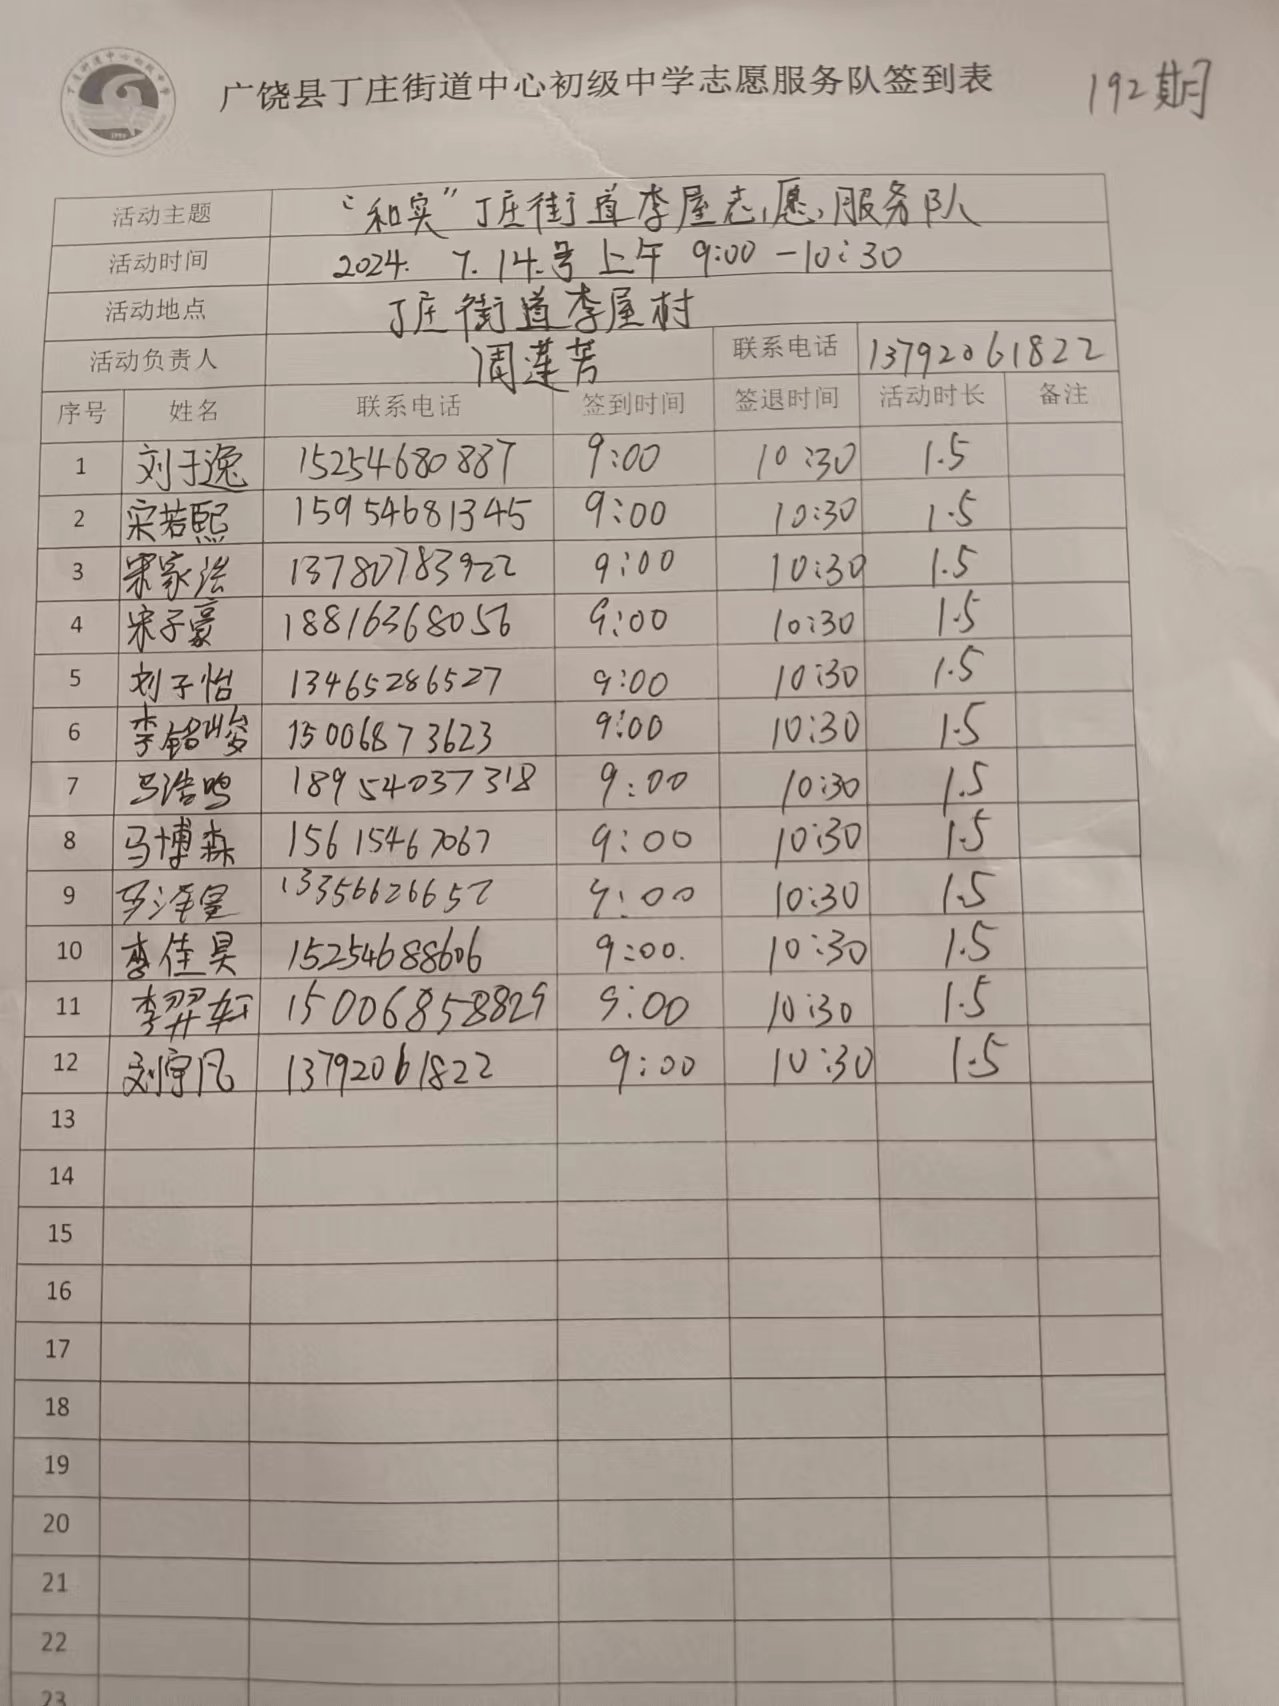 广饶县丁庄街道中心初级中学志愿服务队签到表 192期
活动主题 “和实”丁庄街道李屋志愿服务队
活动时间 2024. 7. 14.号 上午 9:00 -10:30
活动地点 丁庄街道李屋村
活动负责人 周莲芳 联系电话 13792061822
序号 姓名 联系电话 签到时间 签退时间 活动时长 备注
1 刘于逸 15254680887 9:00 10:30 1.5
2 宋若熙 15954681345 9:00 10:30 1.5
3 宋家浩 13780783922 9:00 10:30 1.5
4 宋子豪 18816368056 9:00 10:30 1.5
5 刘子怡 13465286527 9:00 10:30 1.5
6 李铭峻 15006873623 9:00 10:30 1.5
7 马浩鸣 18954037318 9:00 10:30 1.5
8 马博森 15615467067 9:00 10:30 1.5
9 13356626652 9:00 10:30 1.5
10 李佳昊 15254688606 9:00. 10:30 1.5
11 李羿轩 15006858829 9:00 10:30 1.5
12 刘宇凡 13792061822 9:00 10:30 1.5
13
14
15
16
17
18
19
20
21
22
23